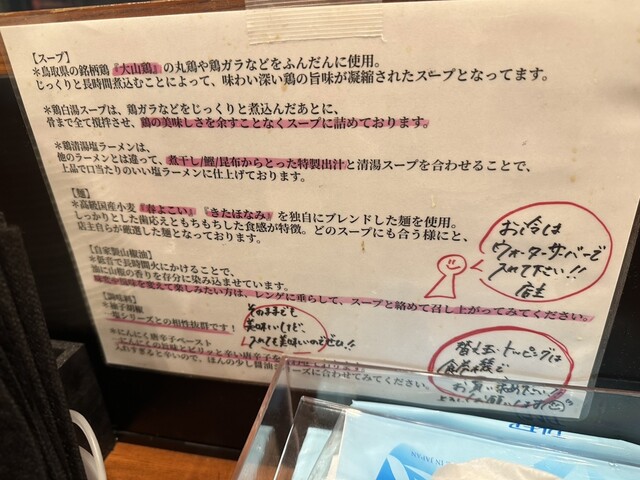 【スープ】
＊鳥取県の銘柄鶏『大山鶏』の丸鶏や鶏ガラなどをふんだんに使用。
じっくりと長時間煮込むことによって、味わい深い鶏の旨味が凝縮されたスープとなってます。
＊鶏白湯スープは、鶏ガラなどをじっくりと煮込んだあとに、
骨まで全て撹拌させ、鶏の美味しさを余すことなくスープに詰めております。
＊鶏清湯塩ラーメンは、
他のラーメンとは違って、煮干し/鰹/昆布からとった特製出汁と清湯スープを合わせることで、
上品で口当たりのいい塩ラーメンに仕上げております。
【麺】
＊高級国産小麦『春よこい』『きたほなみ』を独自にブレンドした麺を使用。
しっかりとした歯応えともちもちした食感が特徴。どのスープにも合う様にと、
店主自らが厳選した麺となっております。
お冷は
ウォーターサーバーで
入れて下さい!!
店主
【自家製山椒油】
＊低音で長時間火にかけることで、
油に山椒の香りを存分に染み込ませています。
味変や風味を変えて楽しみたい方は、レンゲに垂らして、スープと絡めて召し上がってみてください。
【調味料】
＊柚子胡椒
塩シリーズとの相性抜群です！
そのままでも
美味しいけど、
入れても美味しいのでぜひ!!
＊にんにく唐辛子ペースト
にんにくの旨味とピリッと辛い唐辛子を
入れすぎると辛いので、ほんの少し醤油シリーズに合わせてみてください。
替え玉・トッピングは
食券機で
お買い求め下さい